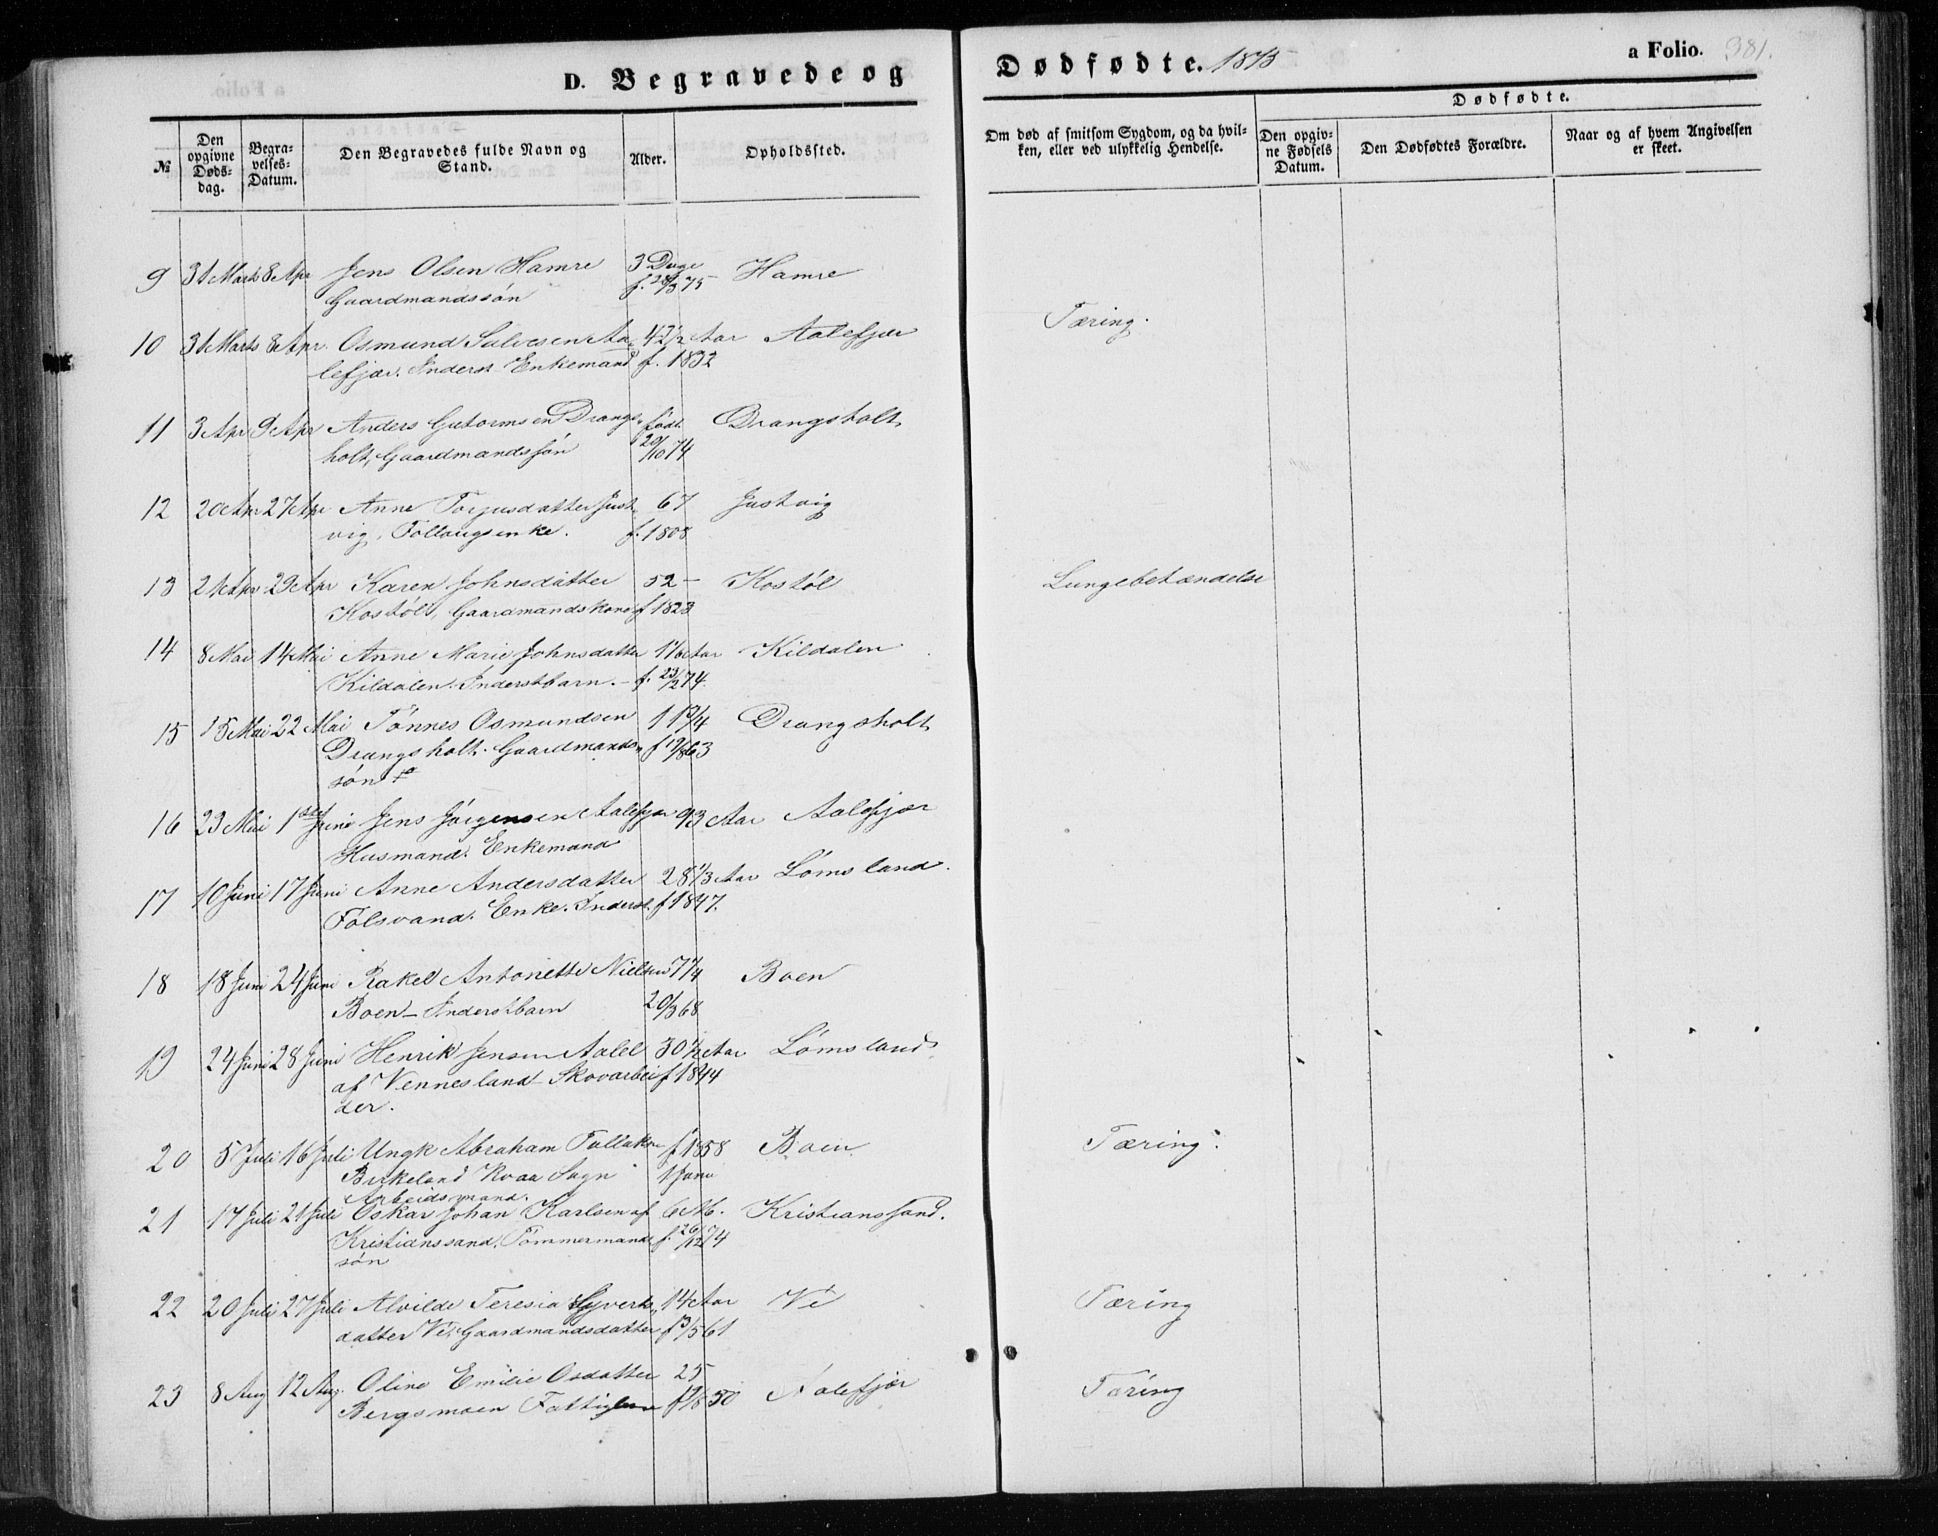 D. Begravede og Dødfødte. 1875
a Folio. 381.
№
Den opgivne Døds-dag.
Begra-velses-Datum.
Den Begravedes fulde Navn og Stand.
Alder.
Opholdssted.
Om død af smitsom Sygdom, og da hvil-ken, eller ved ulykkelig Hendelse.
Dødfødte.
Den opgiv-ne Fødsels Datum.
Den Dødfødtes Forældre.
Naar og af hvem Angivelsen er skeet.
9 31 Marts 8 Apr Jens Olsen Hamre 3 Dage Hamre
Gaardmandssøn f. 28/3 75
10 31 Marts 8 Apr. Osmund Salvesen Aa- 42 1/2 Aar Aalefjær Tæring.
lefjær. Inderst Enkemand f. 1832
11 3 Apr 9 Apr Anders Gutormsen Drangs- født Drangsholt
holt, Gaardmandssøn 20/10 74
12 20 Apr 27 Apr Anne Torjusdatter Just- 67 Justvig
vig, Follaugsenke. f. 1808
13 21 Apr 29 Apr Karen Johnsdatter 52 – Kostøl Lungebetændelse
Kostøl, Gaardmandskone f 1823
14 8 Mai 14 Mai Anne Marie Johnsdatter 1 1/6 Aar Kildalen
Kildalen. Inderstbarn. – f. 23/2 74.
15 15 Mai 22 Mai Tønnes Osmundsen 11 3/4 Drangsholt
Drangsholt. Gaardmands- f 19/8 63
søn
16 23 Mai 1ste Juni Jens Jørgensen Aalefjær 93 Aar Aalefjær
Husmand. Enkemand
17 10 Juni 17 Juni Anne Andersdatter 28 1/3 Aar Lømsland.
Følsvand. Enke. Inderst. f 1847.
18 18 Juni 24 Juni Rakel Antonette Nielsen 7 1/4 Boen
Boen – Inderstbarn 20/3 68
19 24 Juni 28 Juni Henrik Jensen Aalel 30 1/2 Aar Lømsland
af Vennesland Skovarbei- f 1844
der.
20 5 Juli 16 Juli Ungk Abraham Tallaksen f 1858 Boen Tæring.
Birkeland Sogn 1 Janu
Arbeidsmand.
21 17 Juli 21 Juli Oskar Johan Karlsen af 6 M. Kristianssand.
Kristianssand, Tømmermands f. 26/12 74
søn
22 20 Juli 27 Juli Alvilde Teresia Syverts- 14 Aar Ve Tæring
datter Ve, Gaardmandsdatter f 3/5 61
23 8 Aug 12 Aug. Oline Emilie Osdatter 25 Aalefjær Tæring
Bergsmoen Fattiglem f 1/8 50